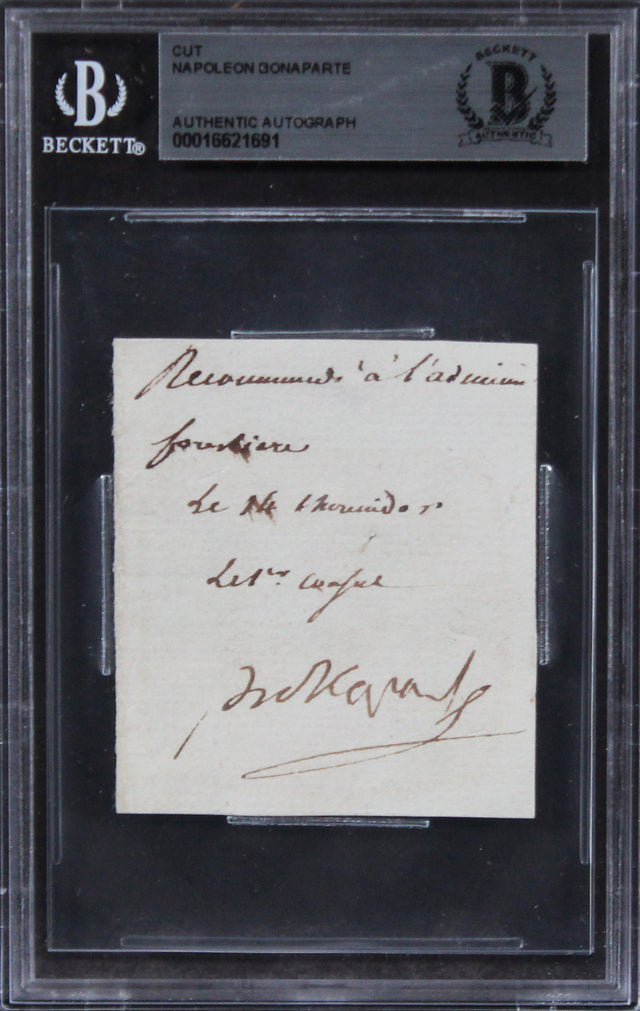 B
BECKETT®
CUT
NAPOLEON BONAPARTE
AUTHENTIC AUTOGRAPH
00016621691
BECKETT
B
AUTHENTIC
Recommandé à l'admini
forestiere
Le 14 thermidor
Le 1er consul